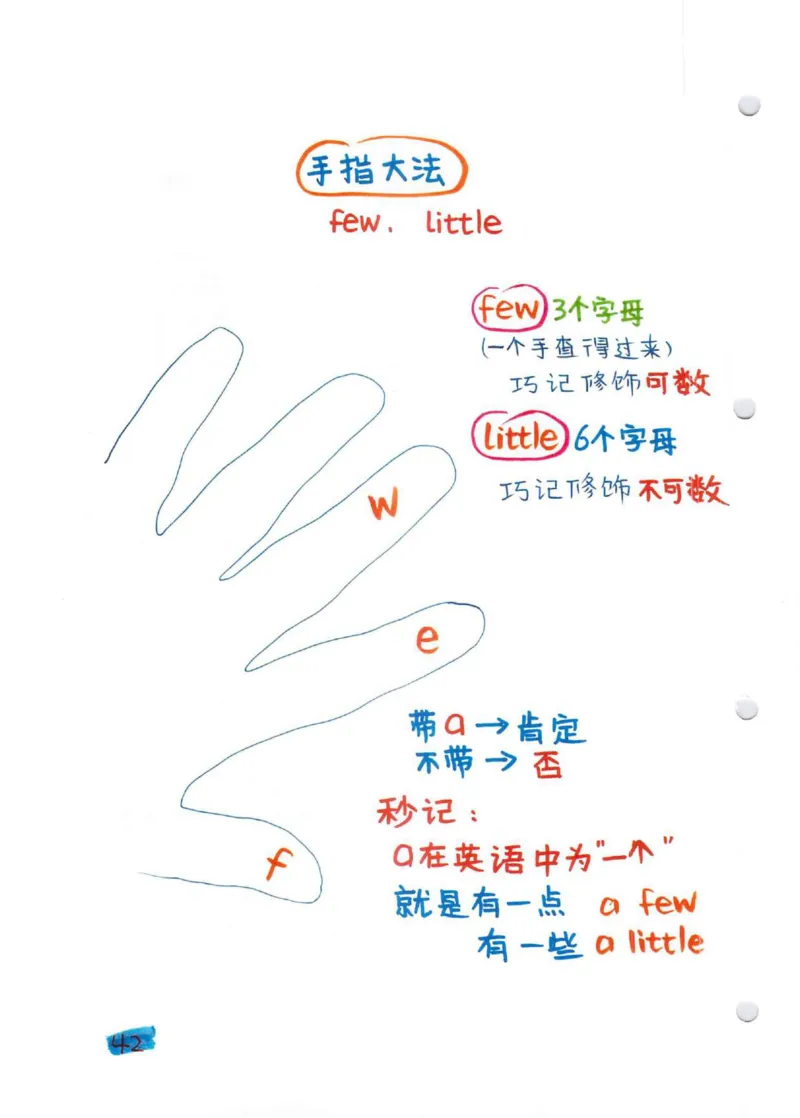 手指大法
few. little
few 3个字母
(一个手查得过来)
巧记修饰可数
little 6个字母
巧记修饰不可数
w
e
f
带a→肯定
不带→否
秒记:
a在英语中为"一个"
就是有一点 a few
有一些 a little
42